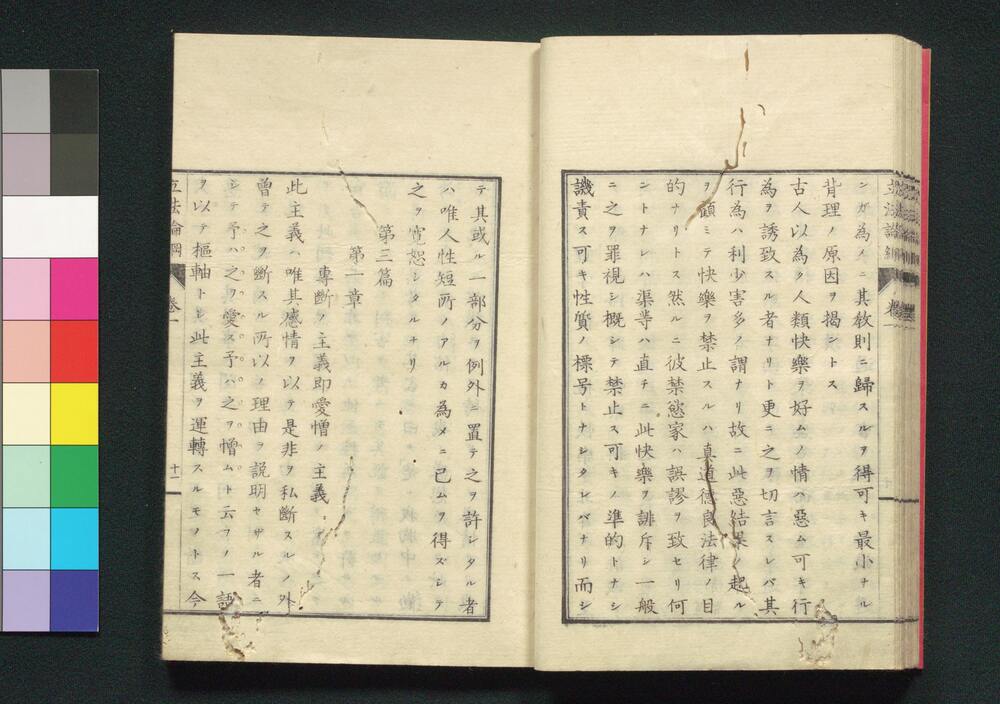 ンガ為メニ其教則ニ歸スルヲ得可キ最小ナル
背理ノ原因ヲ揭ントス
古人以為ク人類快樂ヲ好ムノ情ハ惡ム可キ行
為ヲ誘致スル者ナリト更ニ之ヲ切言スレバ其
行為ハ利少害多ノ謂ナリ故ニ此惡結果ノ起ル
ヲ顧ミテ快樂ヲ禁止スルハ真道德良法律ノ目
的ナリトス然ルニ彼禁慾家ハ誤謬ヲ致セリ何
ントナレハ渠等ハ直チニ此快樂ヲ誹斥シ一般
ニ之ヲ罪視シ概シテ禁止ス可キノ準的トナシ
譏責ス可キ性質ノ標号トナシタレバナリ而シ
テ其或ル一部分ヲ例外ニ置テ之ヲ許シタル者
ハ唯人性短所ノアルカ為メニ已ムヲ得ズシテ
之ヲ寛恕シタルナリ
第三篇
第一章
專斷ノ主義即愛憎ノ主義
此主義ハ唯其感情ヲ以テ是非ヲ私斷スルノ外
曾テ之ヲ斷スル所以ノ理由ヲ説明セザル者ニ
シテ予ハ之ヲ愛ス予ハ之ヲ憎ムト云フノ一語
ヲ以テ樞軸トシ此主義ヲ運轉スルモノトス今
立法論綱
卷一
十一